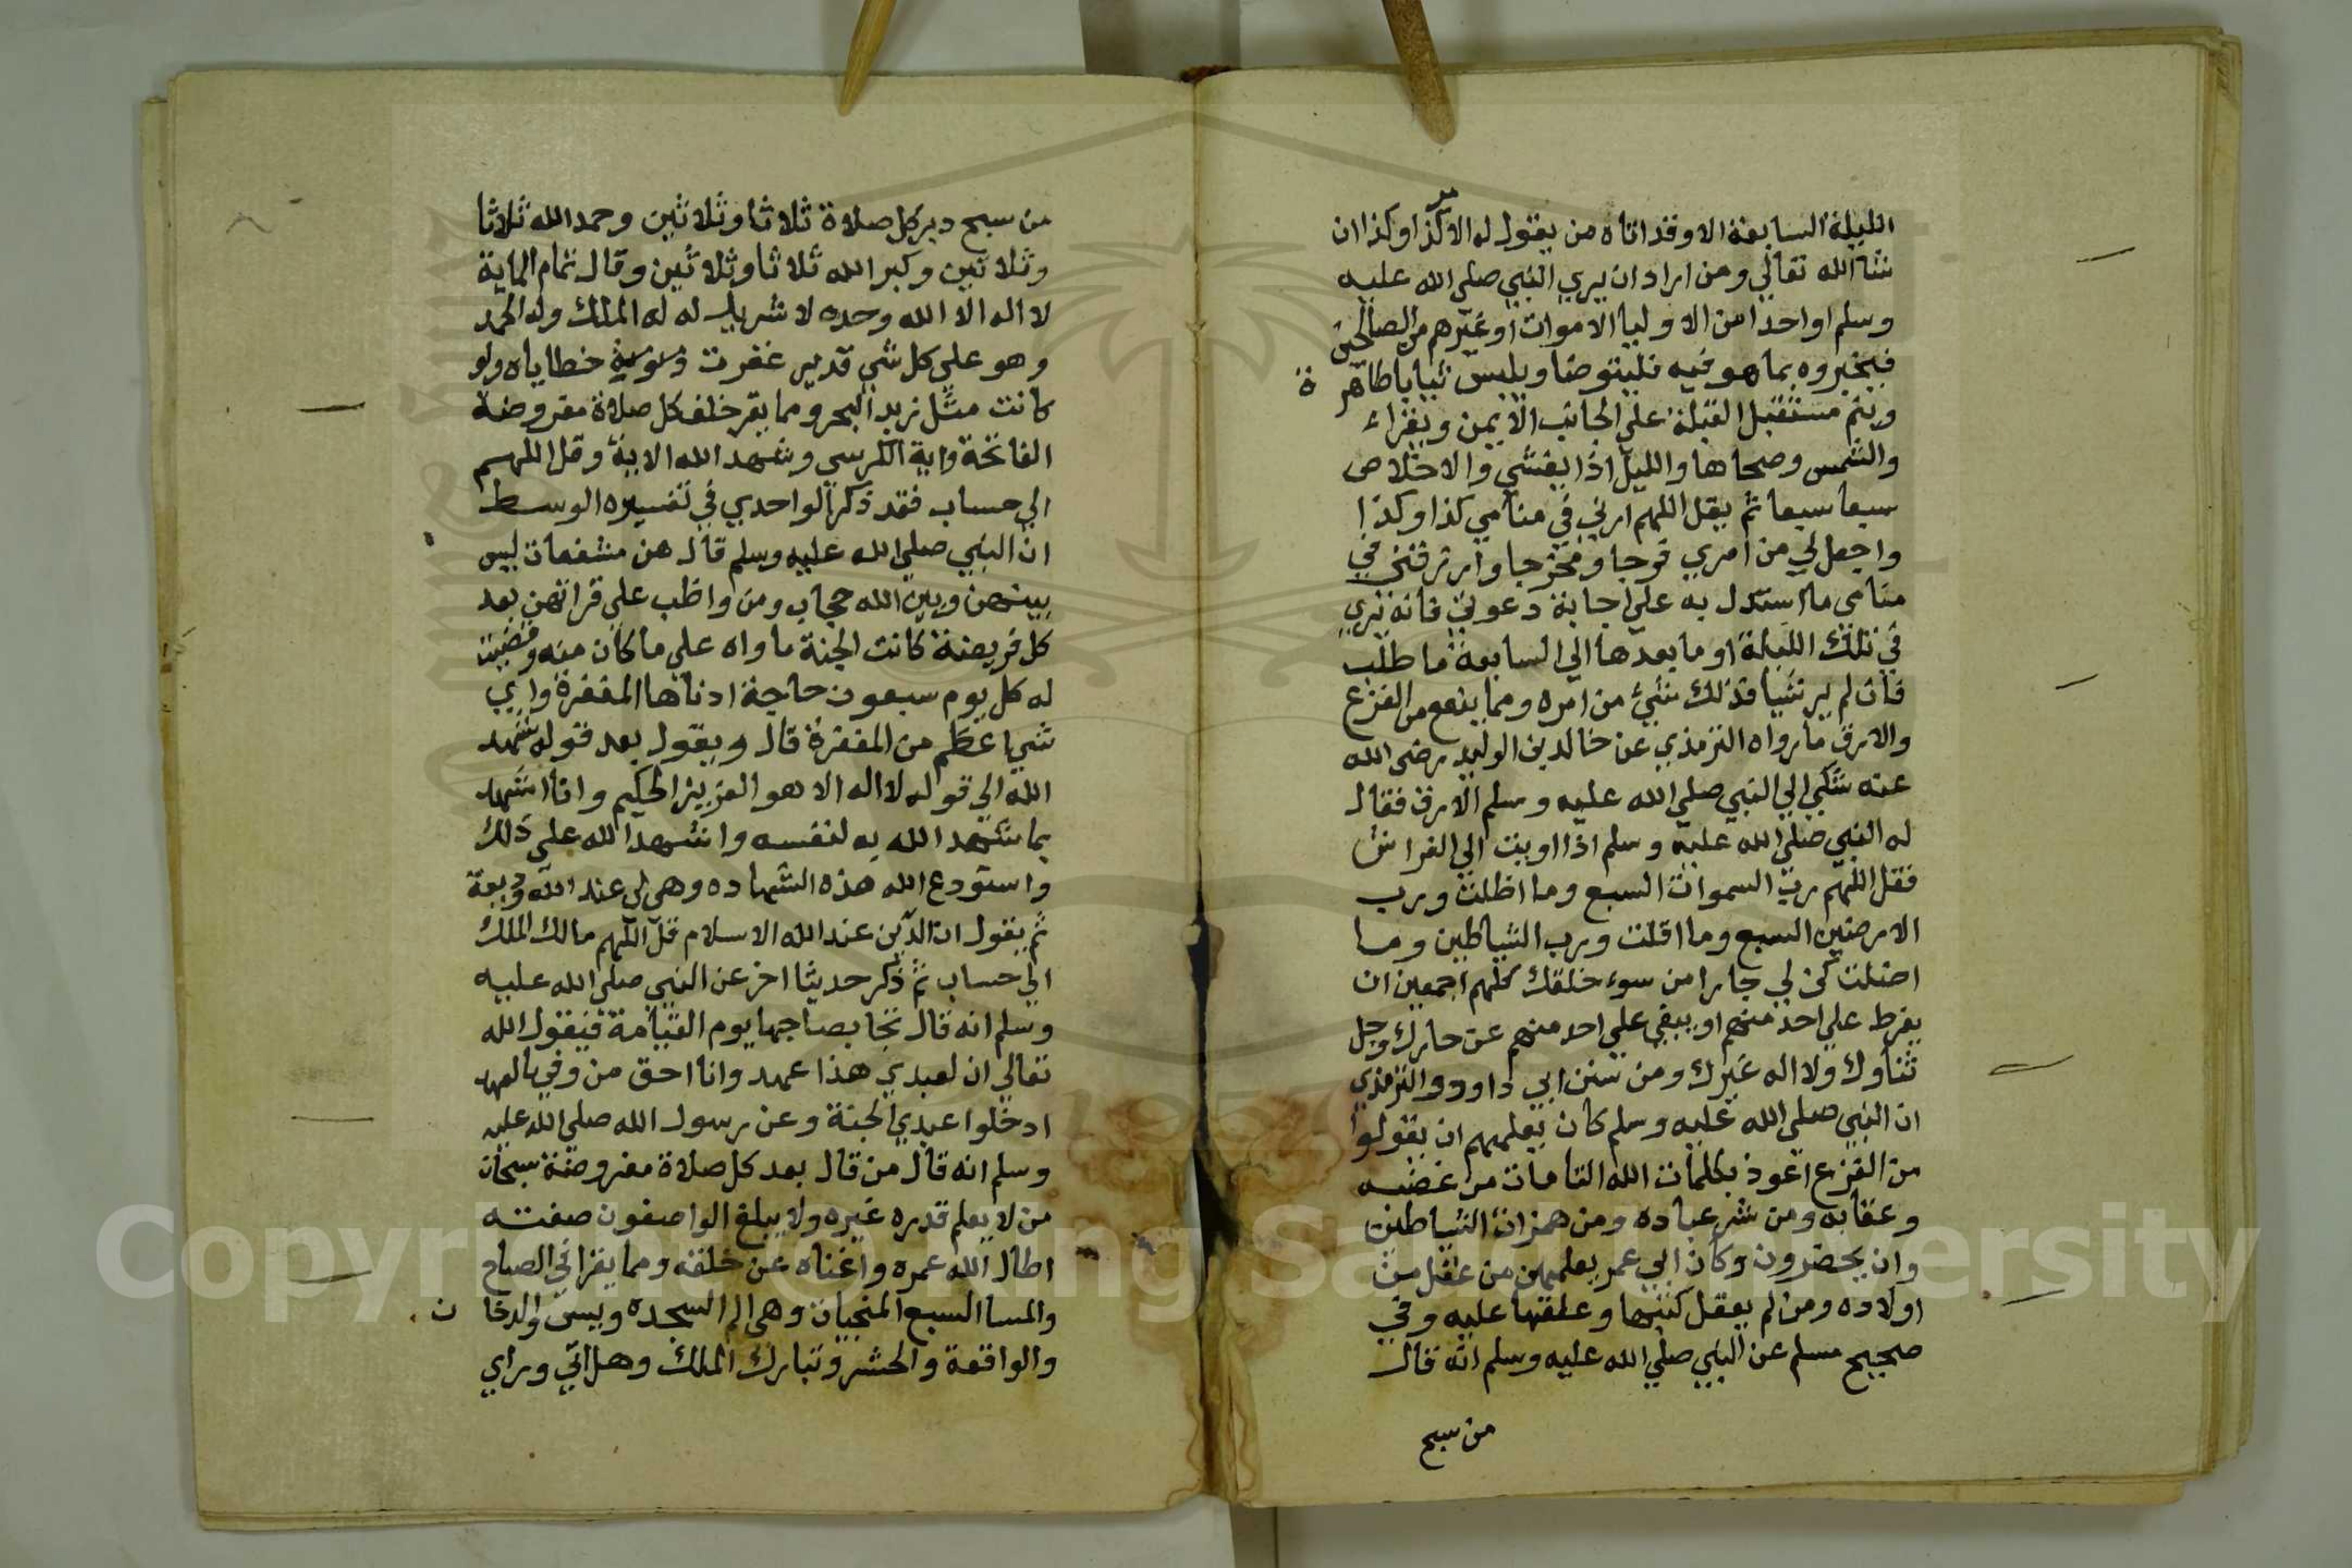 الليلة السابعة الا وقد اتاه من يقول له الامر كذا وكذا ان
شآ الله تعالي ومن اراد ان يري النبي صلي الله عليه
وسلم او احدا من الاوليا الاموات او غيرهم من الصالحين
فيخبروه بما هو فيه فليتوضا ويلبس ثيابا طاهرة
وينم مستقبل القبلة علي الجانب الايمن ويقراء
والشمس وضحاها والليل اذا يغشي والاخلاص
سبعا سبعا ثم يقل اللهم ارني في منامي كذا وكذا
واجعل لي من امري فرجا ومخرجا وارزقني في
منامي ما استدل به علي اجابة دعوتي فانه يري
في تلك الليلة او ما بعدها الي السابعة ما طلب
فان لم ير شيا فذلك شيء من امره ومما ينفع من الفزع
والارق ما رواه الترمذي عن خالد بن الوليد رضي الله
عنه شكي الي النبي صلي الله عليه وسلم الارق فقال
له النبي صلي الله عليه وسلم اذا اويت الي الفراش
فقل اللهم رب السموات السبع وما اظلت ورب
الارضين السبع وما اقلت ورب الشياطين وما
اضلت كن لي جارا من سوء خلقك كلهم اجمعين ان
يفرط علي احد منهم او يبقي علي احد منهم عن جارك وجل
ثناوك ولا اله غيرك ومن سنن ابي داوود والترمذي
ان النبي صلي الله عليه وسلم كان يعلمهم ان يقولوا
من الفزع اعوذ بكلمات الله التامات من غضبه
وعقابه ومن شر عباده ومن همزات الشياطين
وان يحضرون وكان ابي عمر يعلمهن من عقل من
اولاده ومن لم يعقل كتبها وعلقها عليه وفي
صحيح مسلم عن النبي صلي الله عليه وسلم انه قال
من سبح
من سبح دبر كل صلاة ثلاثا وثلاثين وحمد الله ثلاثا
وثلاثين وكبر الله ثلاثا وثلاثين وقال تمام الماية
لا اله الا الله وحده لا شريك له له الملك وله الحمد
وهو علي كل شي قدير غفرت خطاياه ولو
كانت مثل زبد البحر ومما يقر خلف كل صلاة مفروضة
الفاتحة واية الكرسي وشهد الله الاية وقل اللهم
الي حساب فقد ذكر الواحدي في تفسيره الوسط
ان النبي صلي الله عليه وسلم قال هن مشفعات ليس
بينهن وبين الله حجاب ومن واظب علي قراتهن بعد
كل فريضة كانت الجنة ماواه علي ما كان منه وقضيت
له كل يوم سبعون حاجة ادناها المغفرة واي
شي اعظم من المغفرة قال ويقول بعد قوله شهد
الله الي قوله لا اله الا هو العزيز الحكيم وانا اشهد
بما شهد الله به لنفسه واشهد الله علي ذلك
واستودع الله هذه الشهاده وهي لي عند الله وديعة
ثم يقول ان الدين عند الله الاسلام قل اللهم مالك الملك
الي حساب ثم ذكر حديثا اخر عن النبي صلي الله عليه
وسلم انه قال تجا بصاحبها يوم القيامة فيقول الله
تعالي ان لعبدي هذا عهد وانا احق من وفي بالعهد
ادخلوا عبدي الجنة وعن رسول الله صلي الله عليه
وسلم انه قال من قال بعد كل صلاة مفروضة سبحان
من لا يعلم قدره غيره ولا يبلغ الواصفون صفته
اطال الله عمره واغناه عن خلقه ومما يقرا في الصباح
والمسا السبع المنجيات وهي الم السجده ويسن والدخان
والواقعة والحشر وتبارك الملك وهل اتي وراي
Copyright © King Saud University
1957